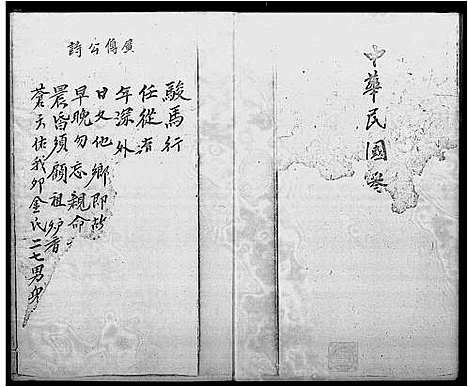 中華民國
廣傳公詩
駿馬行
任從
年深外
日久他鄉即故
早晚勿忘親命
晨昏須顧祖炉香
蒼天佑我卯金氏
二七男